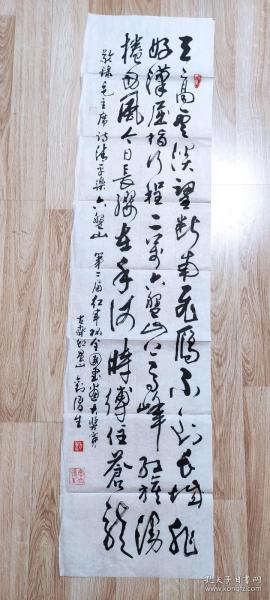 天高云淡望断南飞雁不到长城非
好汉屈指行程二万六盘山上高峰红旗漫
捲西风今日长缨在手何时缚住苍龙
敬录毛主席诗清平乐六盘山 第二届红军杯全国书画大奖赛
古齐邹平山 刘
孔夫子旧书网